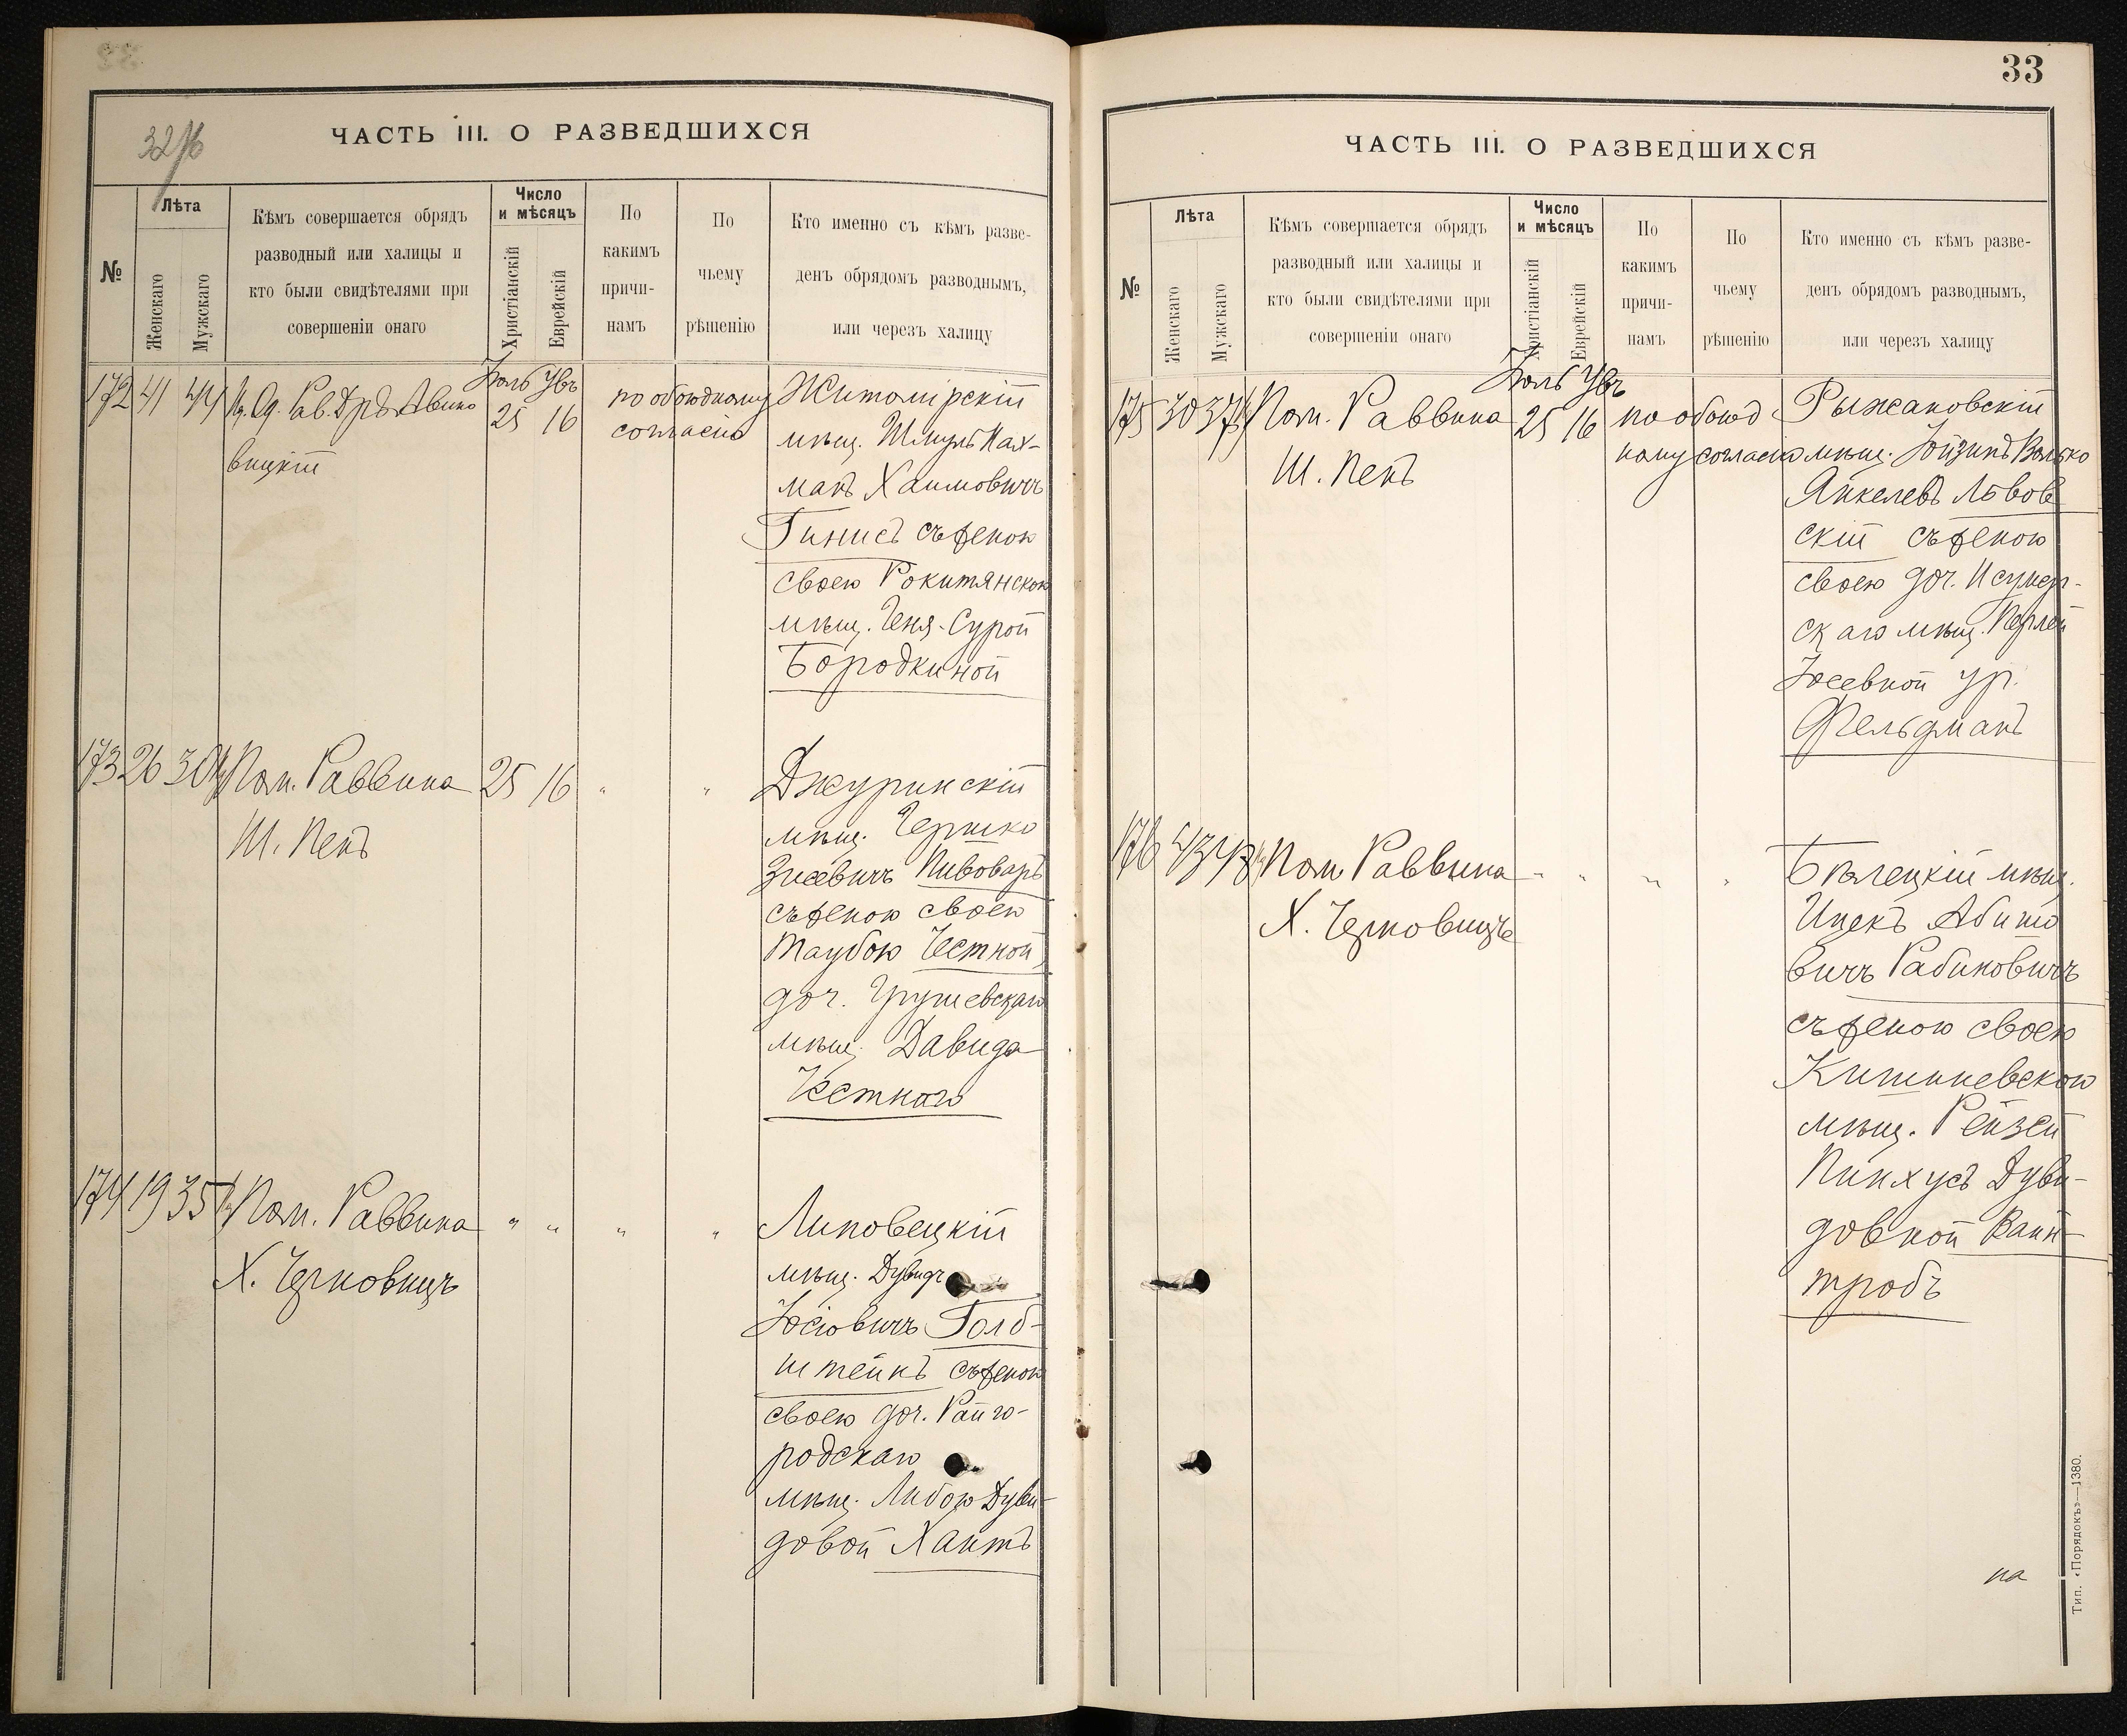 32 об
ЧАСТЬ III. О РАЗВЕДШИХСЯ
№
Лѣта
Женскаго
Мужскаго
Кѣмъ совершается обрядъ
разводный или халицы и
кто были свидѣтелями при
совершеніи онаго
Число
и мѣсяцъ
Христіанскій
Еврейскій
По
какимъ
причи-
намъ
По
чьему
рѣшенію
Кто именно съ кѣмъ разве-
денъ обрядомъ разводнымъ,
или черезъ халицу
172 41 44 Од. Рав. Д-ръ Авино
вицкій
Іюль
25 16
по обоюдному
согласію
Житомірскій
мѣщ. Шмуль Нах-
манъ Хаимовичъ
Гинисъ съ женою
своею Рокитянскою
мѣщ. Геня-Сурой
Бородкиной
173 26 30 Пом. Раввина 25 16 " "
Ш. Пенъ
Джуринскій
мѣщ. Гершко
Зисевичъ Пивоваръ
съ женою своею
Таубою Честной,
доч. Грушевскаго
мѣщ. Давида
Честнаго
174 19 35 Пом. Раввина " " " "
Х. Черновицъ
Липовецкій
мѣщ. Дувидъ
Іосіовичъ Голд-
штейнъ съ женою
своею доч. Райго-
родскаго
мѣщ. Либою Дуви-
довой Хаитъ
33
ЧАСТЬ III. О РАЗВЕДШИХСЯ
№
Лѣта
Женскаго
Мужскаго
Кѣмъ совершается обрядъ
разводный или халицы и
кто были свидѣтелями при
совершеніи онаго
Число
и мѣсяцъ
Христіанскій
Еврейскій
По
какимъ
причи-
намъ
По
чьему
рѣшенію
Кто именно съ кѣмъ разве-
денъ обрядомъ разводнымъ,
или черезъ халицу
175 30 37 Пом. Раввина
Ш. Пенъ
Іюль
25 16
по обоюд
ному согласію
Рыжановскій
мѣщ. Волько
Янкелевъ Львов
скій съ женою
своею доч.
скаго мѣщ. Перлей
Іосевной ур.
Фельдманъ
176 43 48 Пом. Раввина " " " "
Х. Черновицъ
Бѣлецкій мѣщ.
Ицекъ Абимо
вичъ Рабиновичъ
съ женою своею
Кишиневскою
мѣщ. Рейзей
Пинхусъ Дуви-
довной Вайн-
тробъ
на
Тип. «Порядокъ»—1380.